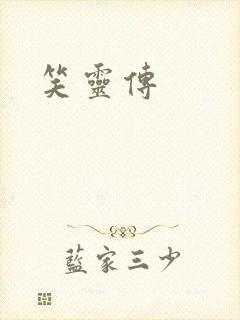 笑靈傳
藍家三少